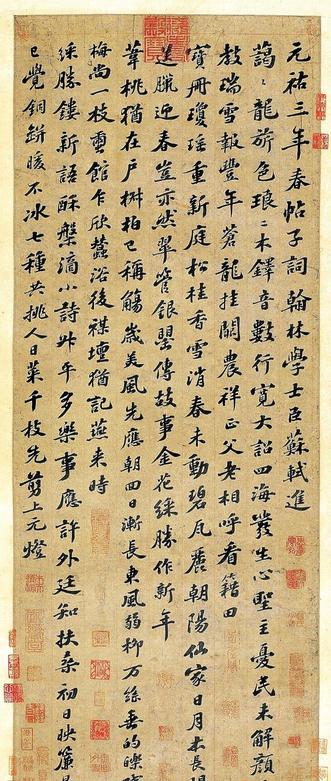 元祐三年春帖子詞翰林學士臣蘇軾進
藹〻龍旂色琅〻木鐸音數行寬大詔四海發生心聖主憂民未解顏
教瑞雪報豐年蒼龍挂闕農祥正父老相呼看籍田
寶冊瓊瑤重新庭松桂香雪消春未動碧瓦麗朝陽仙家日月本長
送臘迎春豈亦然翠管銀罌傳故事金花綵勝作新年
葦桃猶在戶椒柏已稱觴歲美風先應朝回日漸長東風弱柳万絲垂的皪
梅尚一枝蚕館乍欣蚕浴後禖壇猶記燕來時
綵勝鏤新語酥槃滴小詩升平多樂事應許外廷知扶桑初日映簾
已覺銅缾暖不冰七種共挑人日菜千枝先剪上元燈